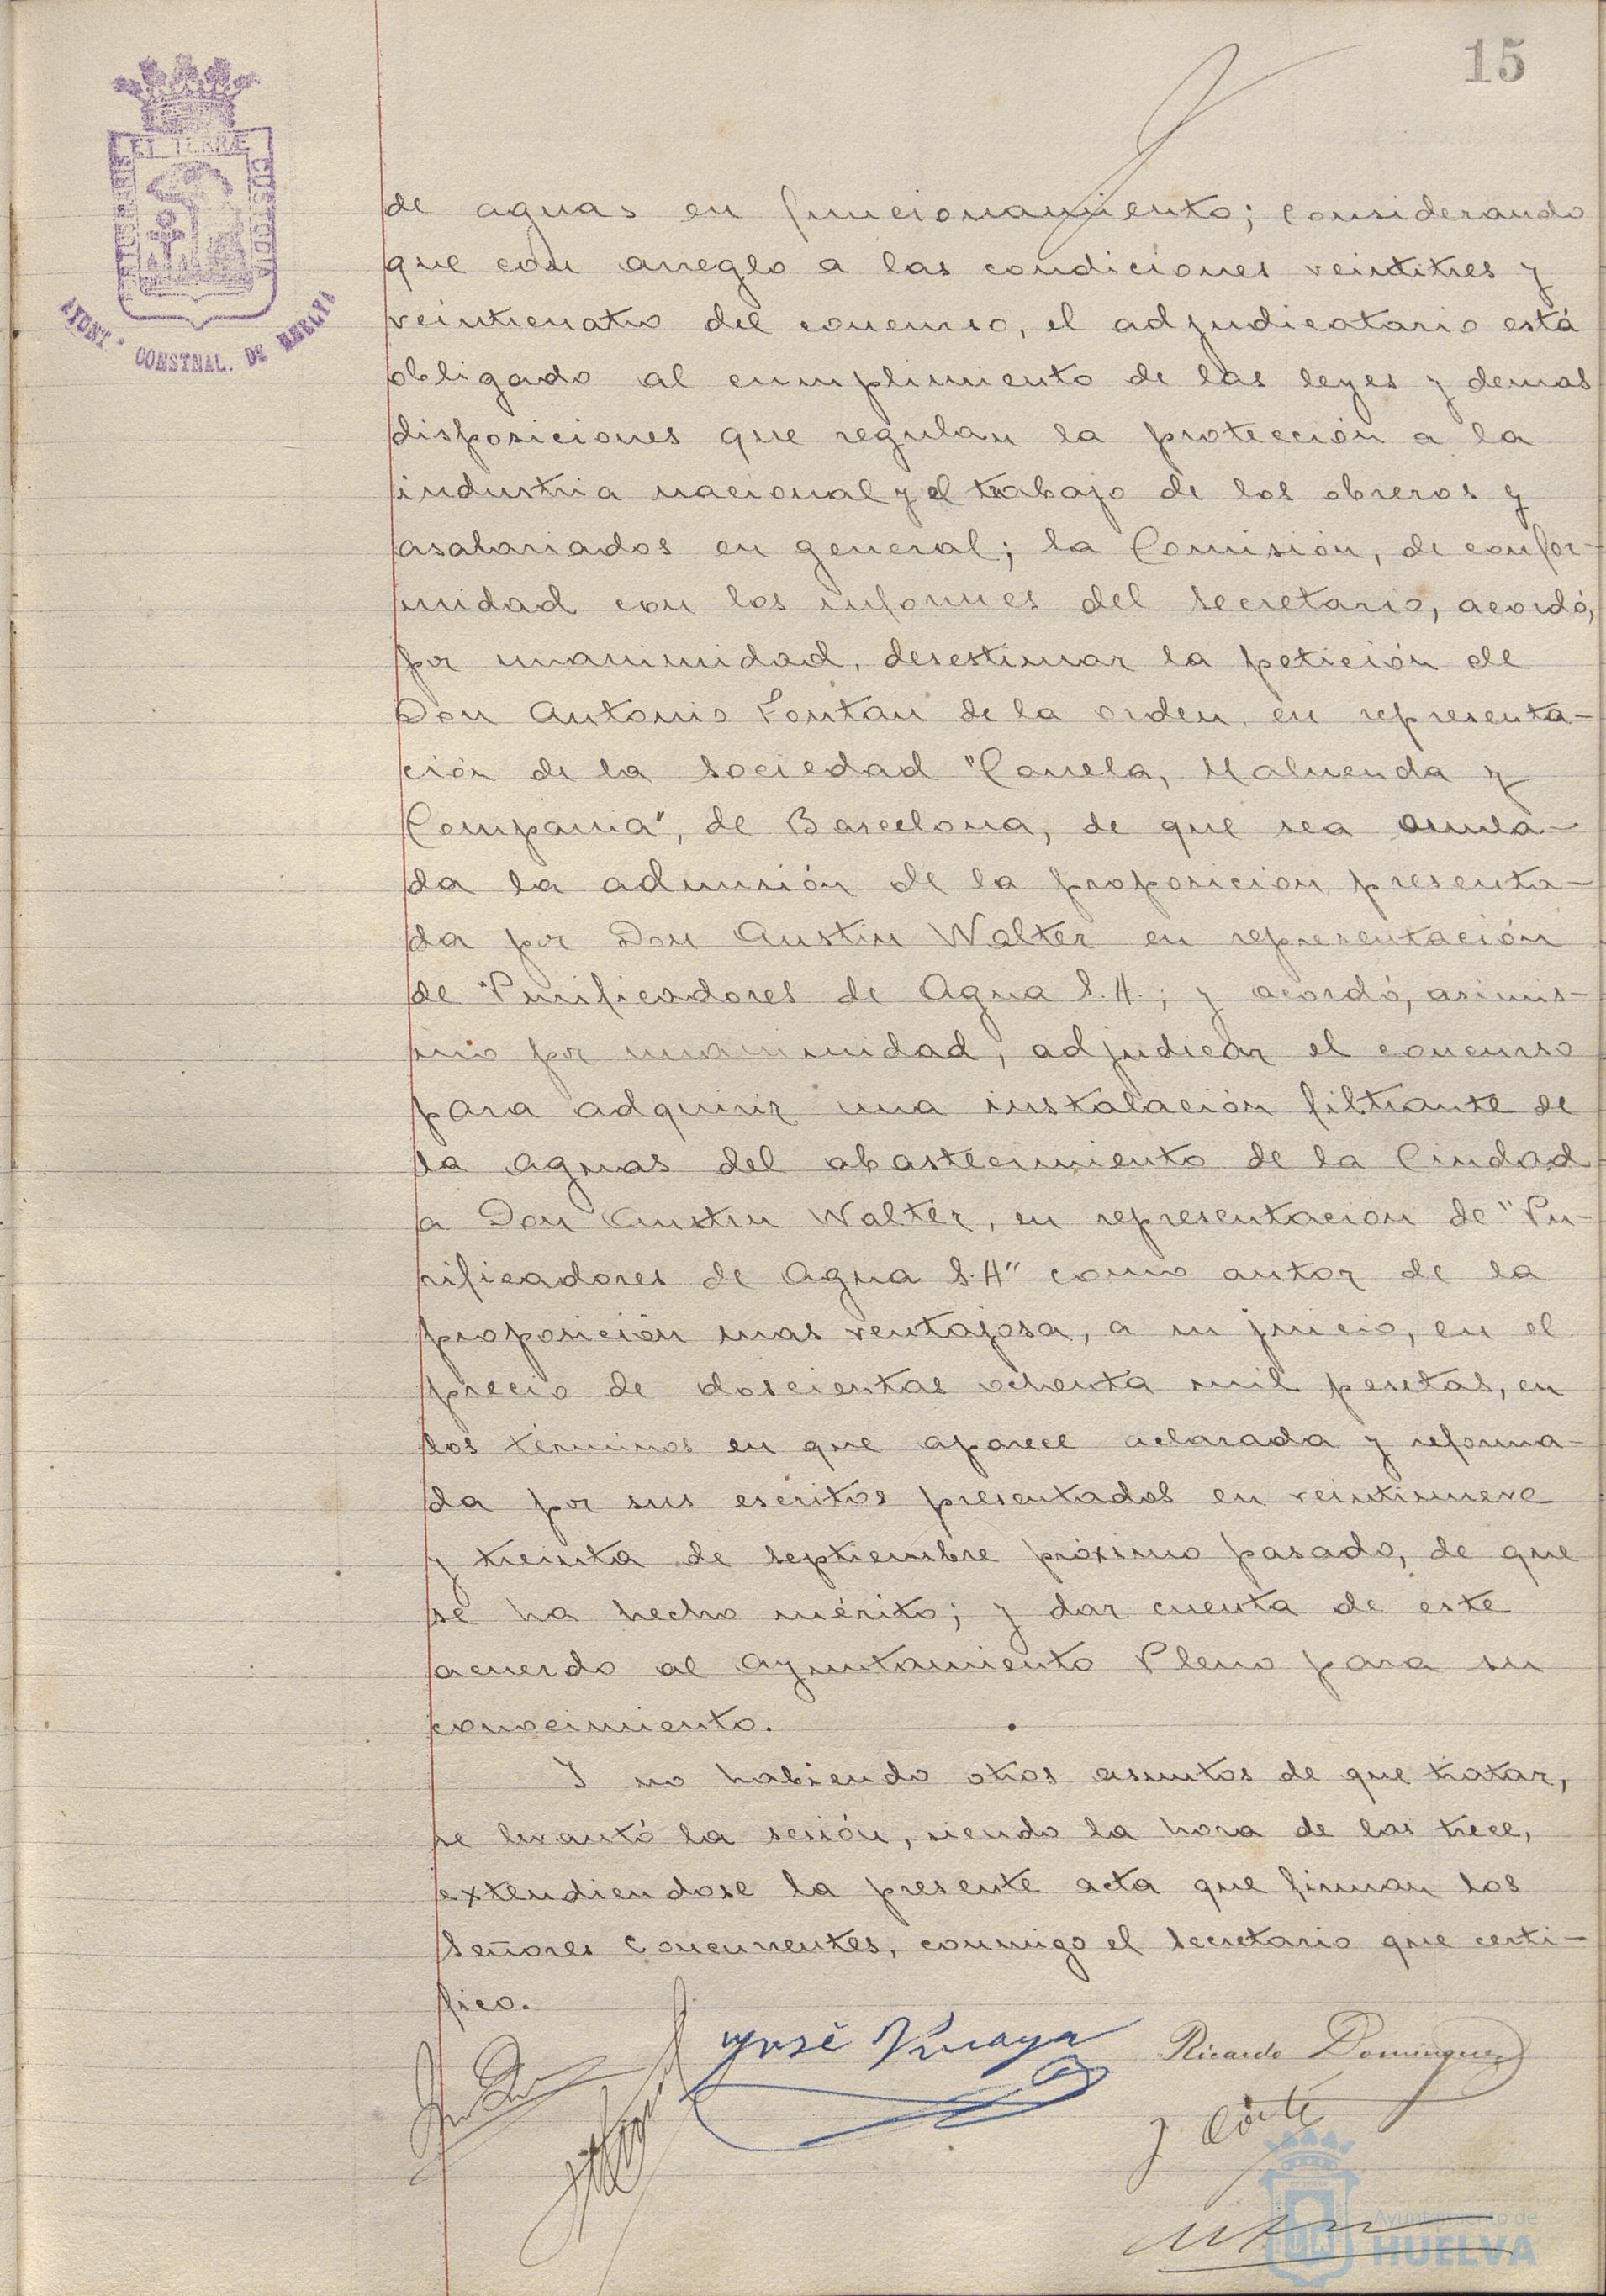 15
ET TERRÆ
AYUNT.º CONSTNAL. DE HUELVA
de aguas en funcionamiento; considerando
que con arreglo a las condiciones veintitres y
veinticuatro del concurso, el adjudicatario está
obligado al cumplimiento de las leyes y demas
disposiciones que regulan la protección a la
industria nacional y el trabajo de los obreros y
asalariados en general; la Comisión, de confor-
midad con los informes del Secretario, acordó,
por unanimidad, desestimar la petición de
Don Antonio Fontan de la orden, en representa-
ción de la Sociedad "Canela, Maluenda y
Compania", de Barcelona, de que sea anula-
da la admisión de la proposicion presenta-
da por Don Austin Walter en representación
de "Purificadores de Agua S.A.; y acordó, asimis-
mo por unanimidad, adjudicar el concurso
para adquirir una instalación filtrante de
la aguas del abastecimiento de la Ciudad
a Don Austin Walter, en representacion de "Pu-
rificadores de Agua S.A" como autor de la
proposición mas ventajosa, a su juicio, en el
precio de doscientas ochenta mil pesetas, en
los términos en que aparece aclarada y reforma-
da por sus escritos presentados en veintinueve
y treinta de septiembre próximo pasado, de que
se ha hecho mérito; y dar cuenta de este
acuerdo al Ayuntamiento Pleno para su
conocimiento.
Y no habiendo otros asuntos de que tratar,
se levantó la sesión, siendo la hora de las trece,
extendiendose la presente acta que firman los
Señores Concurrentes, conmigo el Secretario que certi-
fico.
José
Ricardo Dominguez
J. Corté
Ayuntamiento de
HUELVA